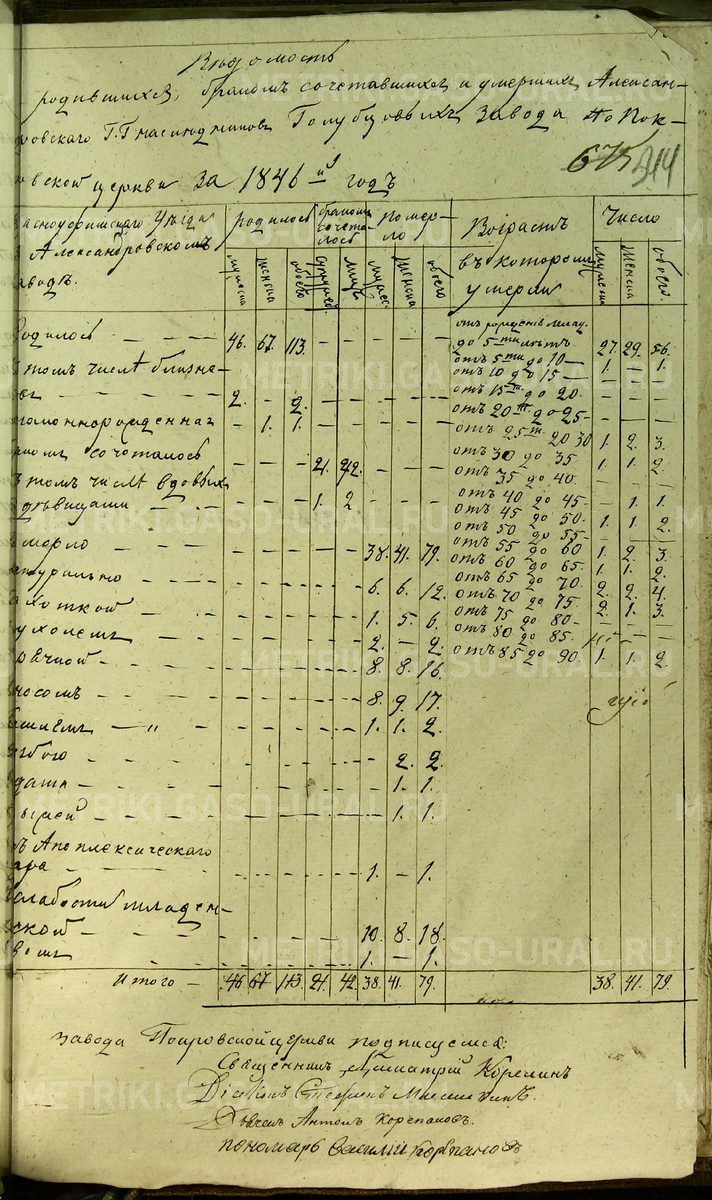 Вѣдомость
родившихся, бракомъ сочетавшихся и умершихъ Алексан-
ровскаго Г.Г наслѣдниковъ Голубцовыхъ завода по Пок-
овской церкви За 1846й годъ
675 914
расноуфимскаго Уѣзда
Александровскомъ
аводѣ.
родилось
бракомъ сочета-
лось
Помер-
ло
Возрастъ
въ которомъ
умерли
Число
мужеска
женска
обоего
супружес.
лицъ
мужеска
женска
обоего
мужеска
женска
обоего.
одилось — — — 46. 67. 113. — — — — — отъ рожденія млад.
до 5ти лѣтъ 27. 29. 56.
томъ числѣ близне- отъ 5ти до 10 — 1. — 1.
отъ 10 до 15 — — — —
2. — 2. — — — — — отъ 15ти до 20. — — —
отъ 20ти до 25 — — — —
— 1. 1. — — — — — отъ 25ти 20 30 1. 2. 3.
комъ сочеталось — — — 21. 42. — — — отъ 30 до 35 1. 1. 2.
томъ числѣ вдовыхъ отъ 35 до 40. — — —
дѣвицами — — — 1. 2 — — — отъ 40 до 45 — — 1. 1.
отъ 45 до 50. 1. 1. 2.
отъ 50 до 55 — — — —
мерло — — — — — 38. 41. 79. отъ 55 до 60 1. 2. 3.
отъ 60 до 65. 1. 1. 2.
турально — — — — — 6. 6. 12. отъ 65 до 70. 2. 2. 4.
отъ 70 до 75. 2. 1. 3.
ахоткой — — — — — 1. 5. 6. отъ 75 до 80 — — — —
отъ 80 до 85. — —
— — — — — 2. — 2. отъ 85 до 90. 1. 1. 2.
рячкой — — — — — 8. 8. 16.
носомъ — — — — — 8. 9. 17.
ашлемъ — " — — — — — 1. 1. 2.
— — — — — — 2. 2.
— — — — — — 1. 1.
— — — — — — 1. 1.
ъ Апоплексическаго
ара — — — — — 1. — 1.
слабости младен-
ской — — — — — 10. 8. 18.
— — — — — 1. — 1.
Итого — 46 67 113 21. 42. 38. 41. 79. 38. 41. 79.
завода Покровской церкви подписуемся:
Священникъ Димитрій Корелинъ
Діаконъ Стефанъ
Дьячекъ Антонъ Корепановъ.
пономарь Василій Корепановъ
METRIKI.GASO-URAL.RU